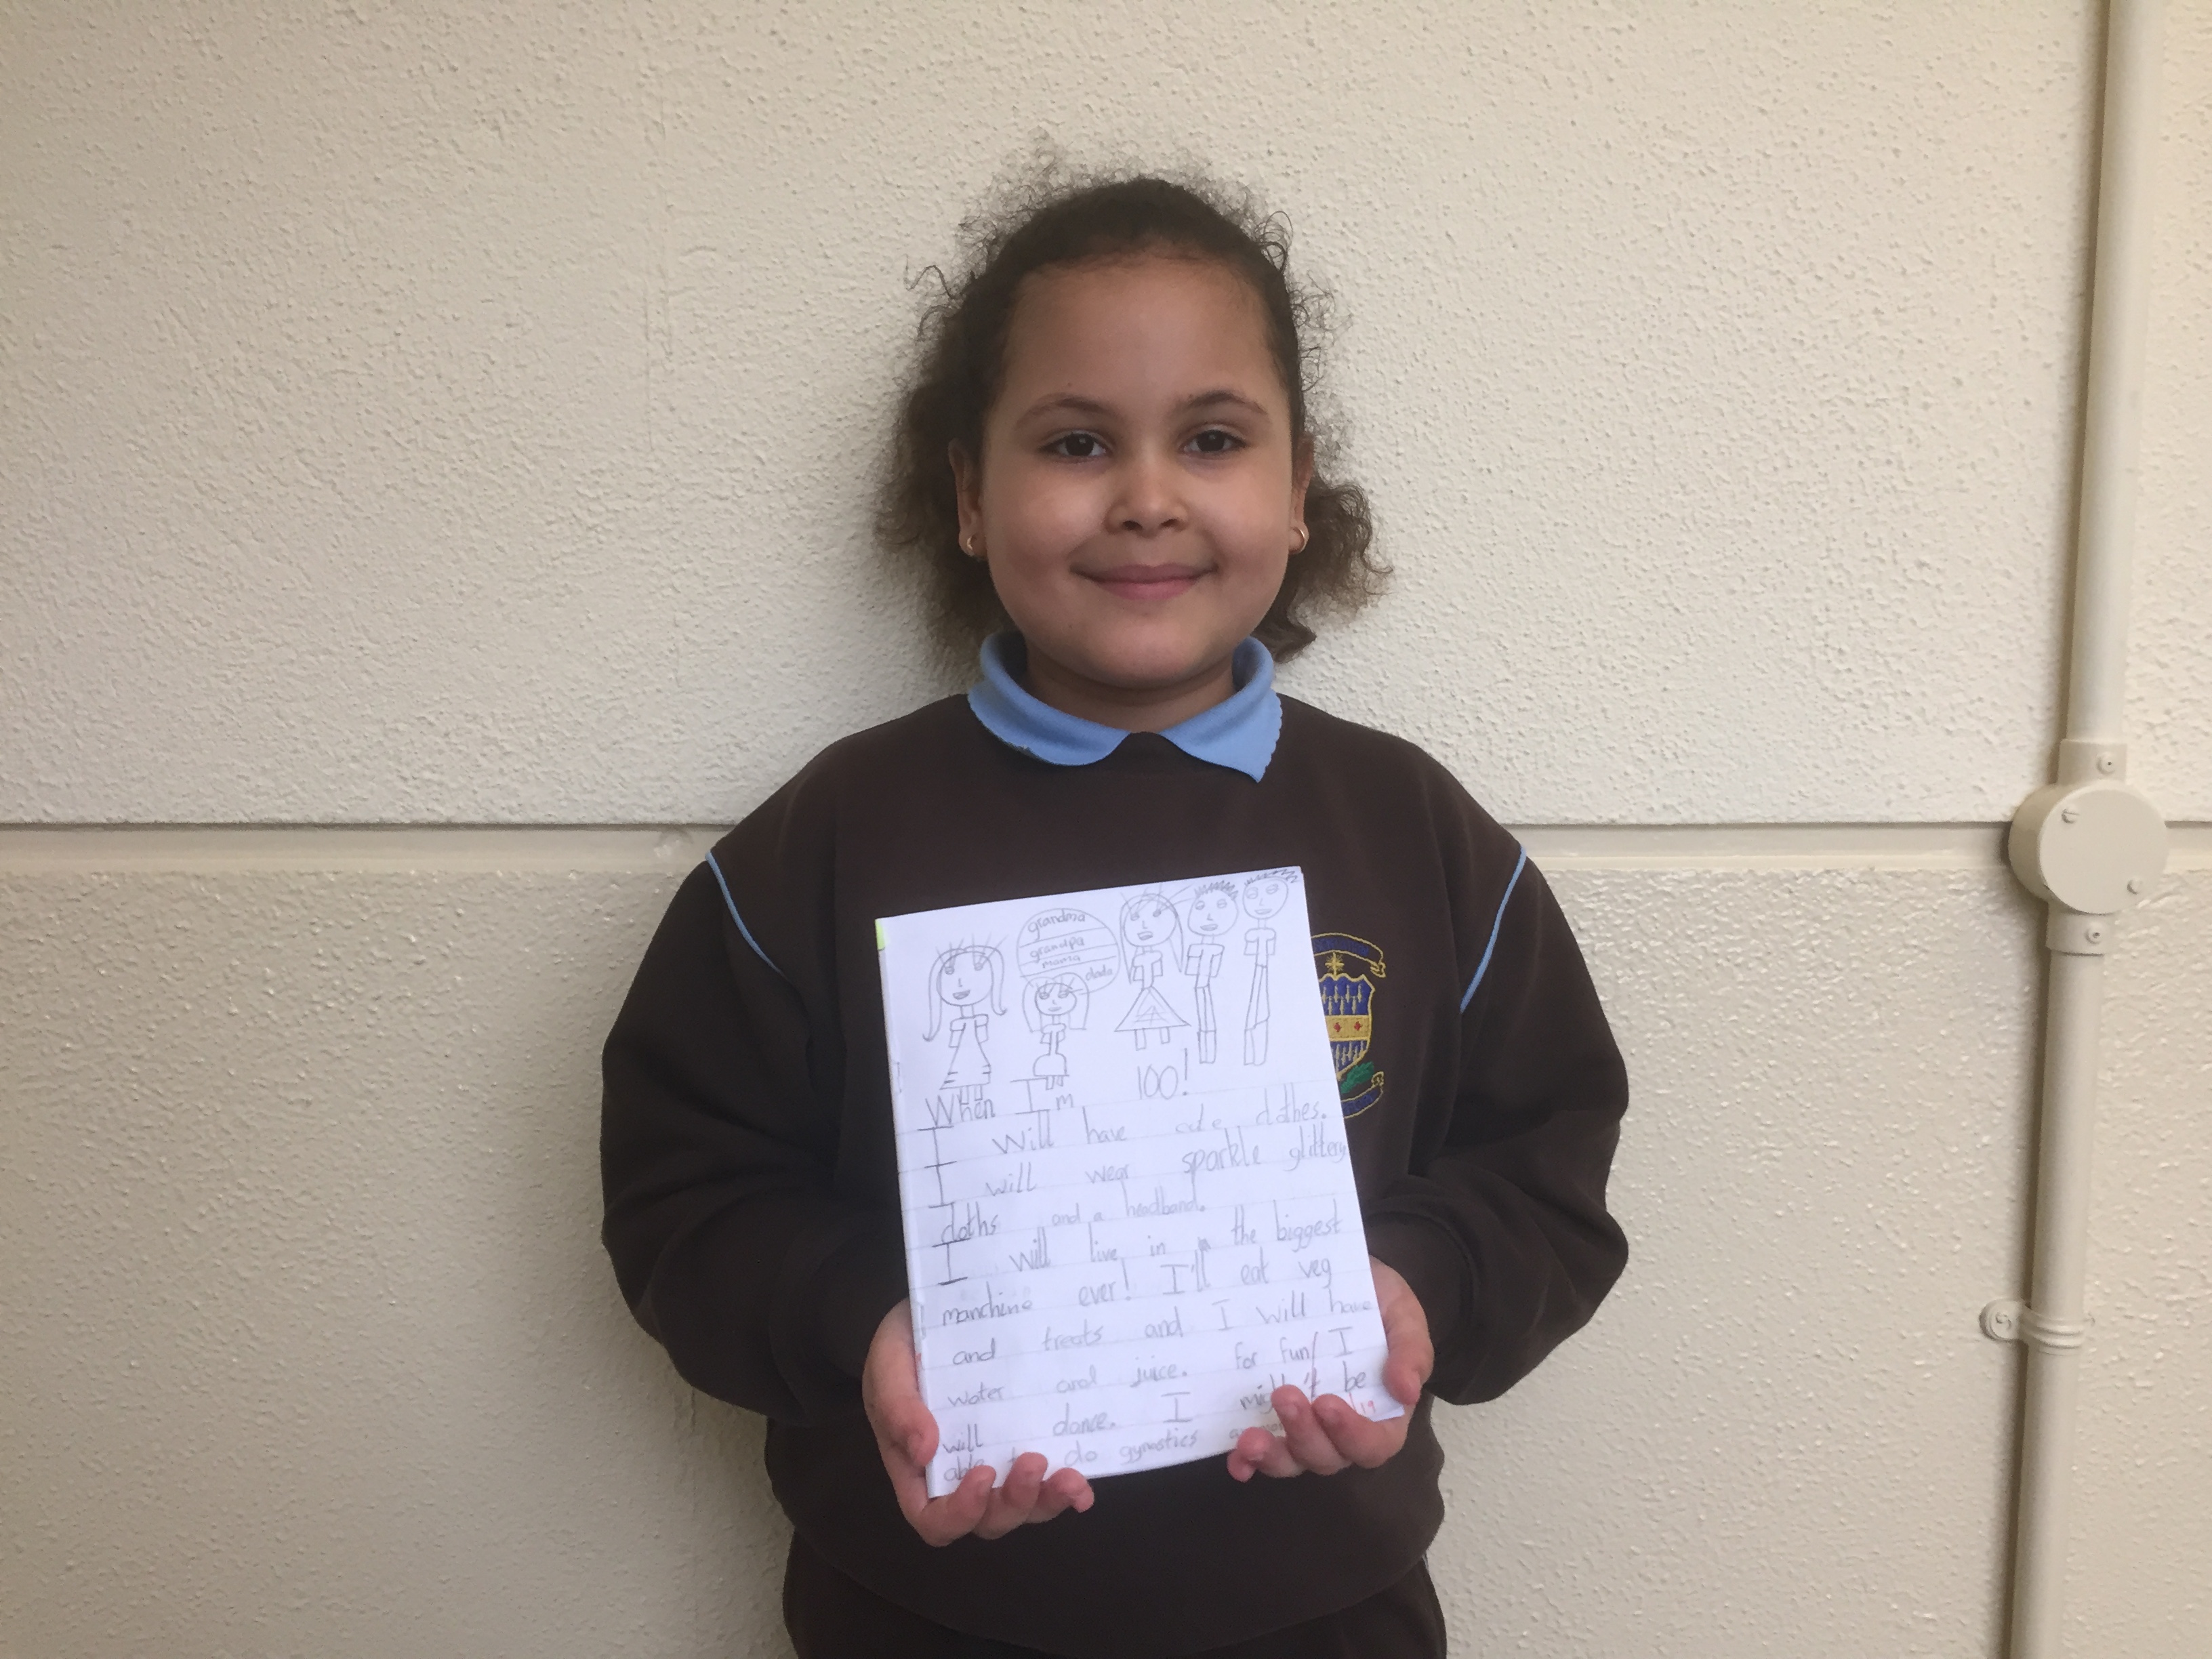 grandma
grandpa
mama
dada
When I'm 100!
I will have clothes.
I will wear sparkle glittery
cloths and a headband.
I will live in the biggest
manchine ever! I'll eat veg
and treats and I will have
water and juice. for fun I
will dance. I might't be
able to do gynastics
19